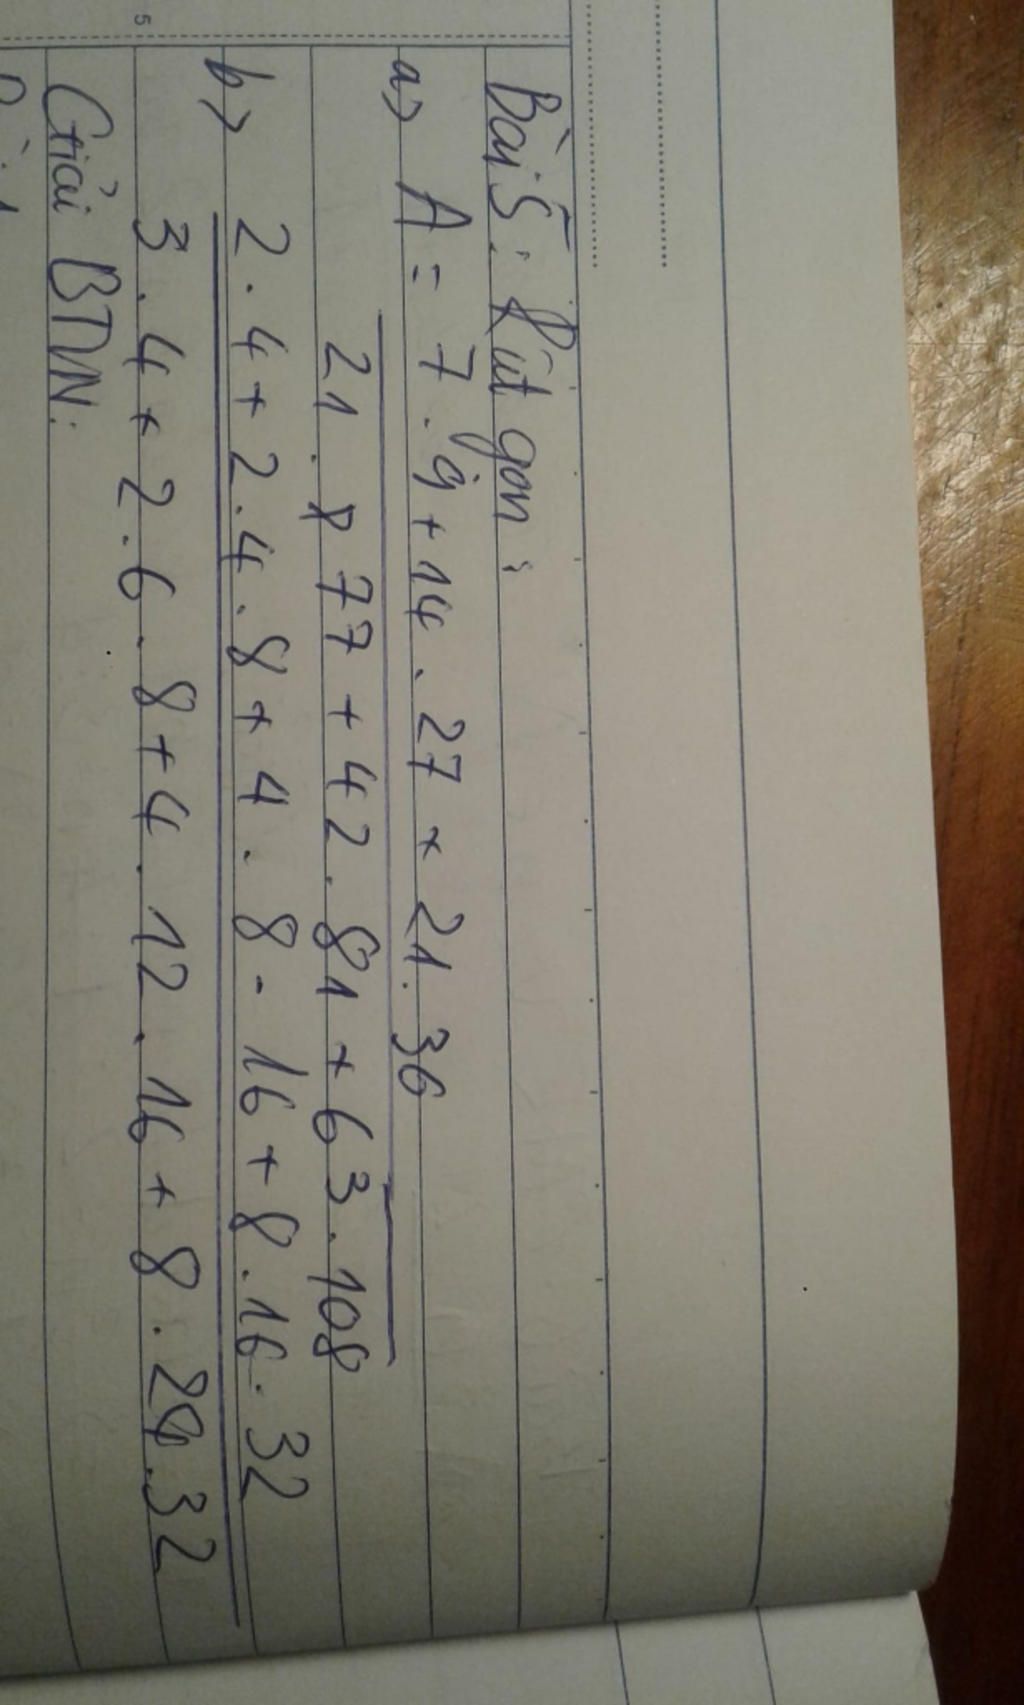 Bài 5: Rút gọn:
a) A = 7.9 + 14.27 + 21.36
21.27 + 42.81 + 63.108
b) 2.4 + 2.4.8 + 4.8.16 + 8.16.32
3.4 + 2.6.8 + 4.12.16 + 8.24.32
Giải BTVN:
5